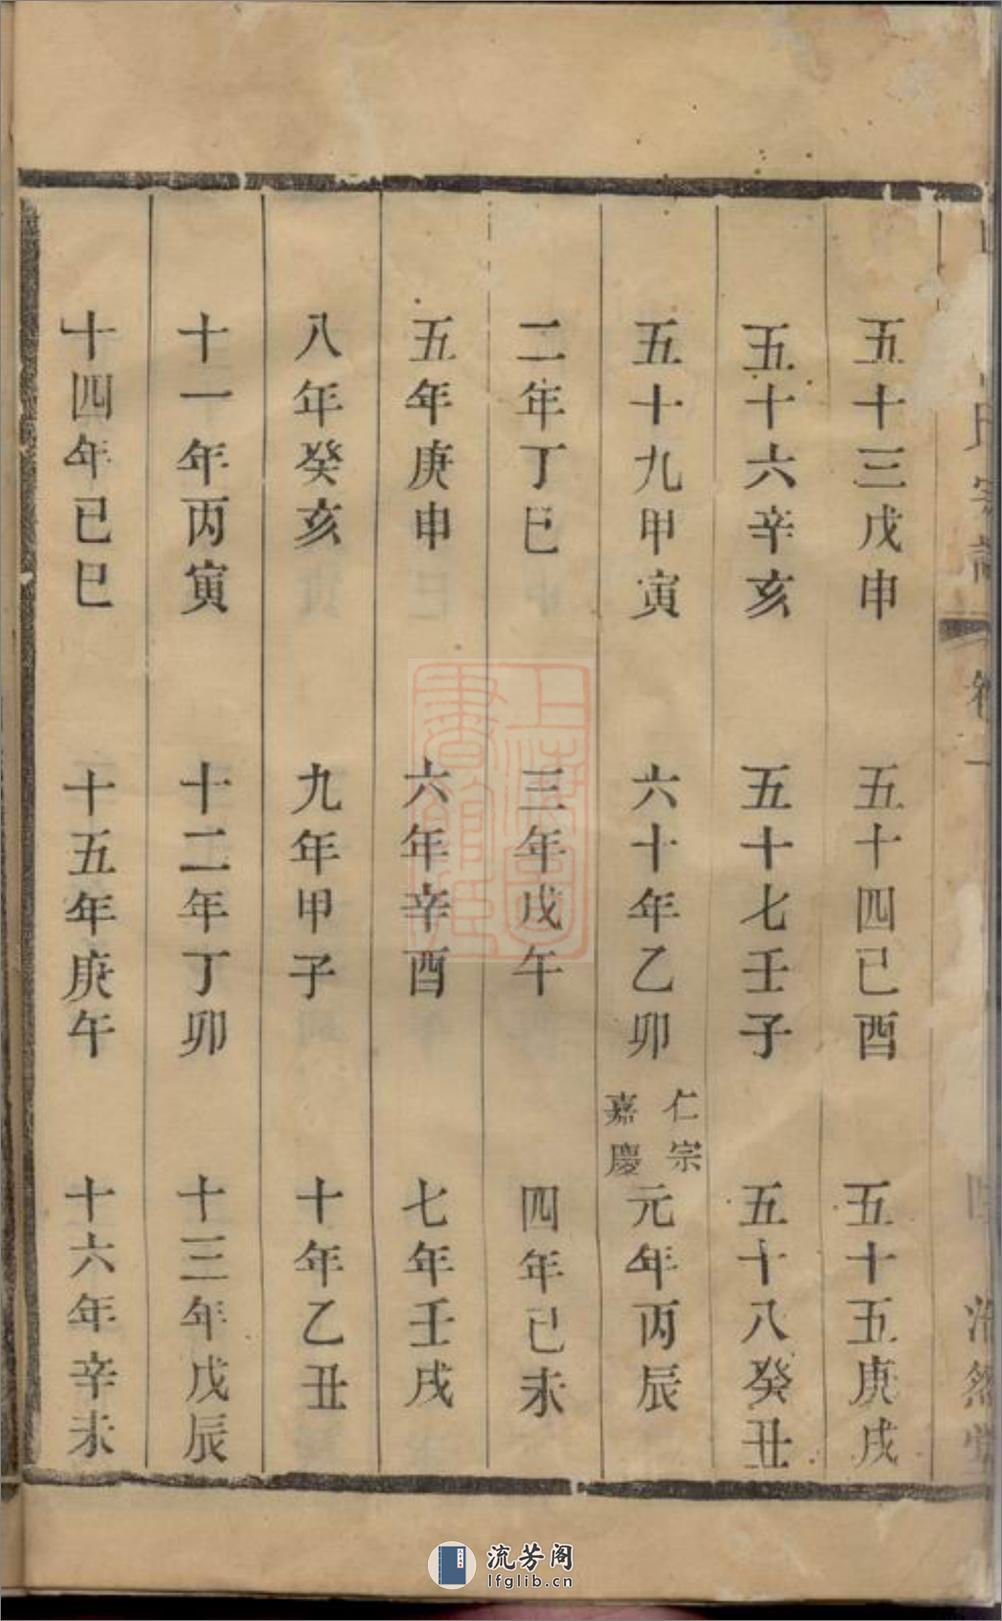 氏宗譜 卷一 浩然堂
五十三戊申 五十四己酉 五十五庚戌
五十六辛亥 五十七壬子 五十八癸丑
五十九甲寅 六十年乙卯 仁宗嘉慶元年丙辰
二年丁巳 三年戊午 四年己未
五年庚申 六年辛酉 七年壬戌
八年癸亥 九年甲子 十年乙丑
十一年丙寅 十二年丁卯 十三年戊辰
十四年己巳 十五年庚午 十六年辛未
上海圖書館藏
流芳阁
lfglib.cn